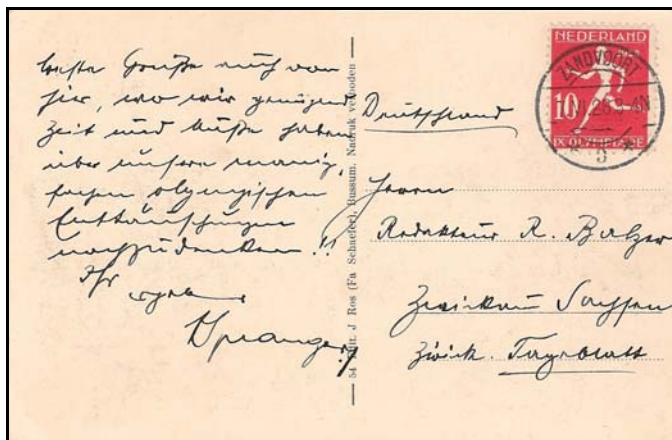 beste Grüße auch von
hier, wo wir genügend
Zeit und Muße haben
über unsere mannig-
fachen olympischen
Enttäuschungen
nachzudenken!!
Ihr
J Ros (Fa Schaefer), Bussum. Nadruk verboden
NEDERLAND
ZANDVOORT
10
IX OLYMPIADE
Deutschland
Herrn
Redakteur R. Balzer
Zwickau Sachsen
Zwick. Tageblatt